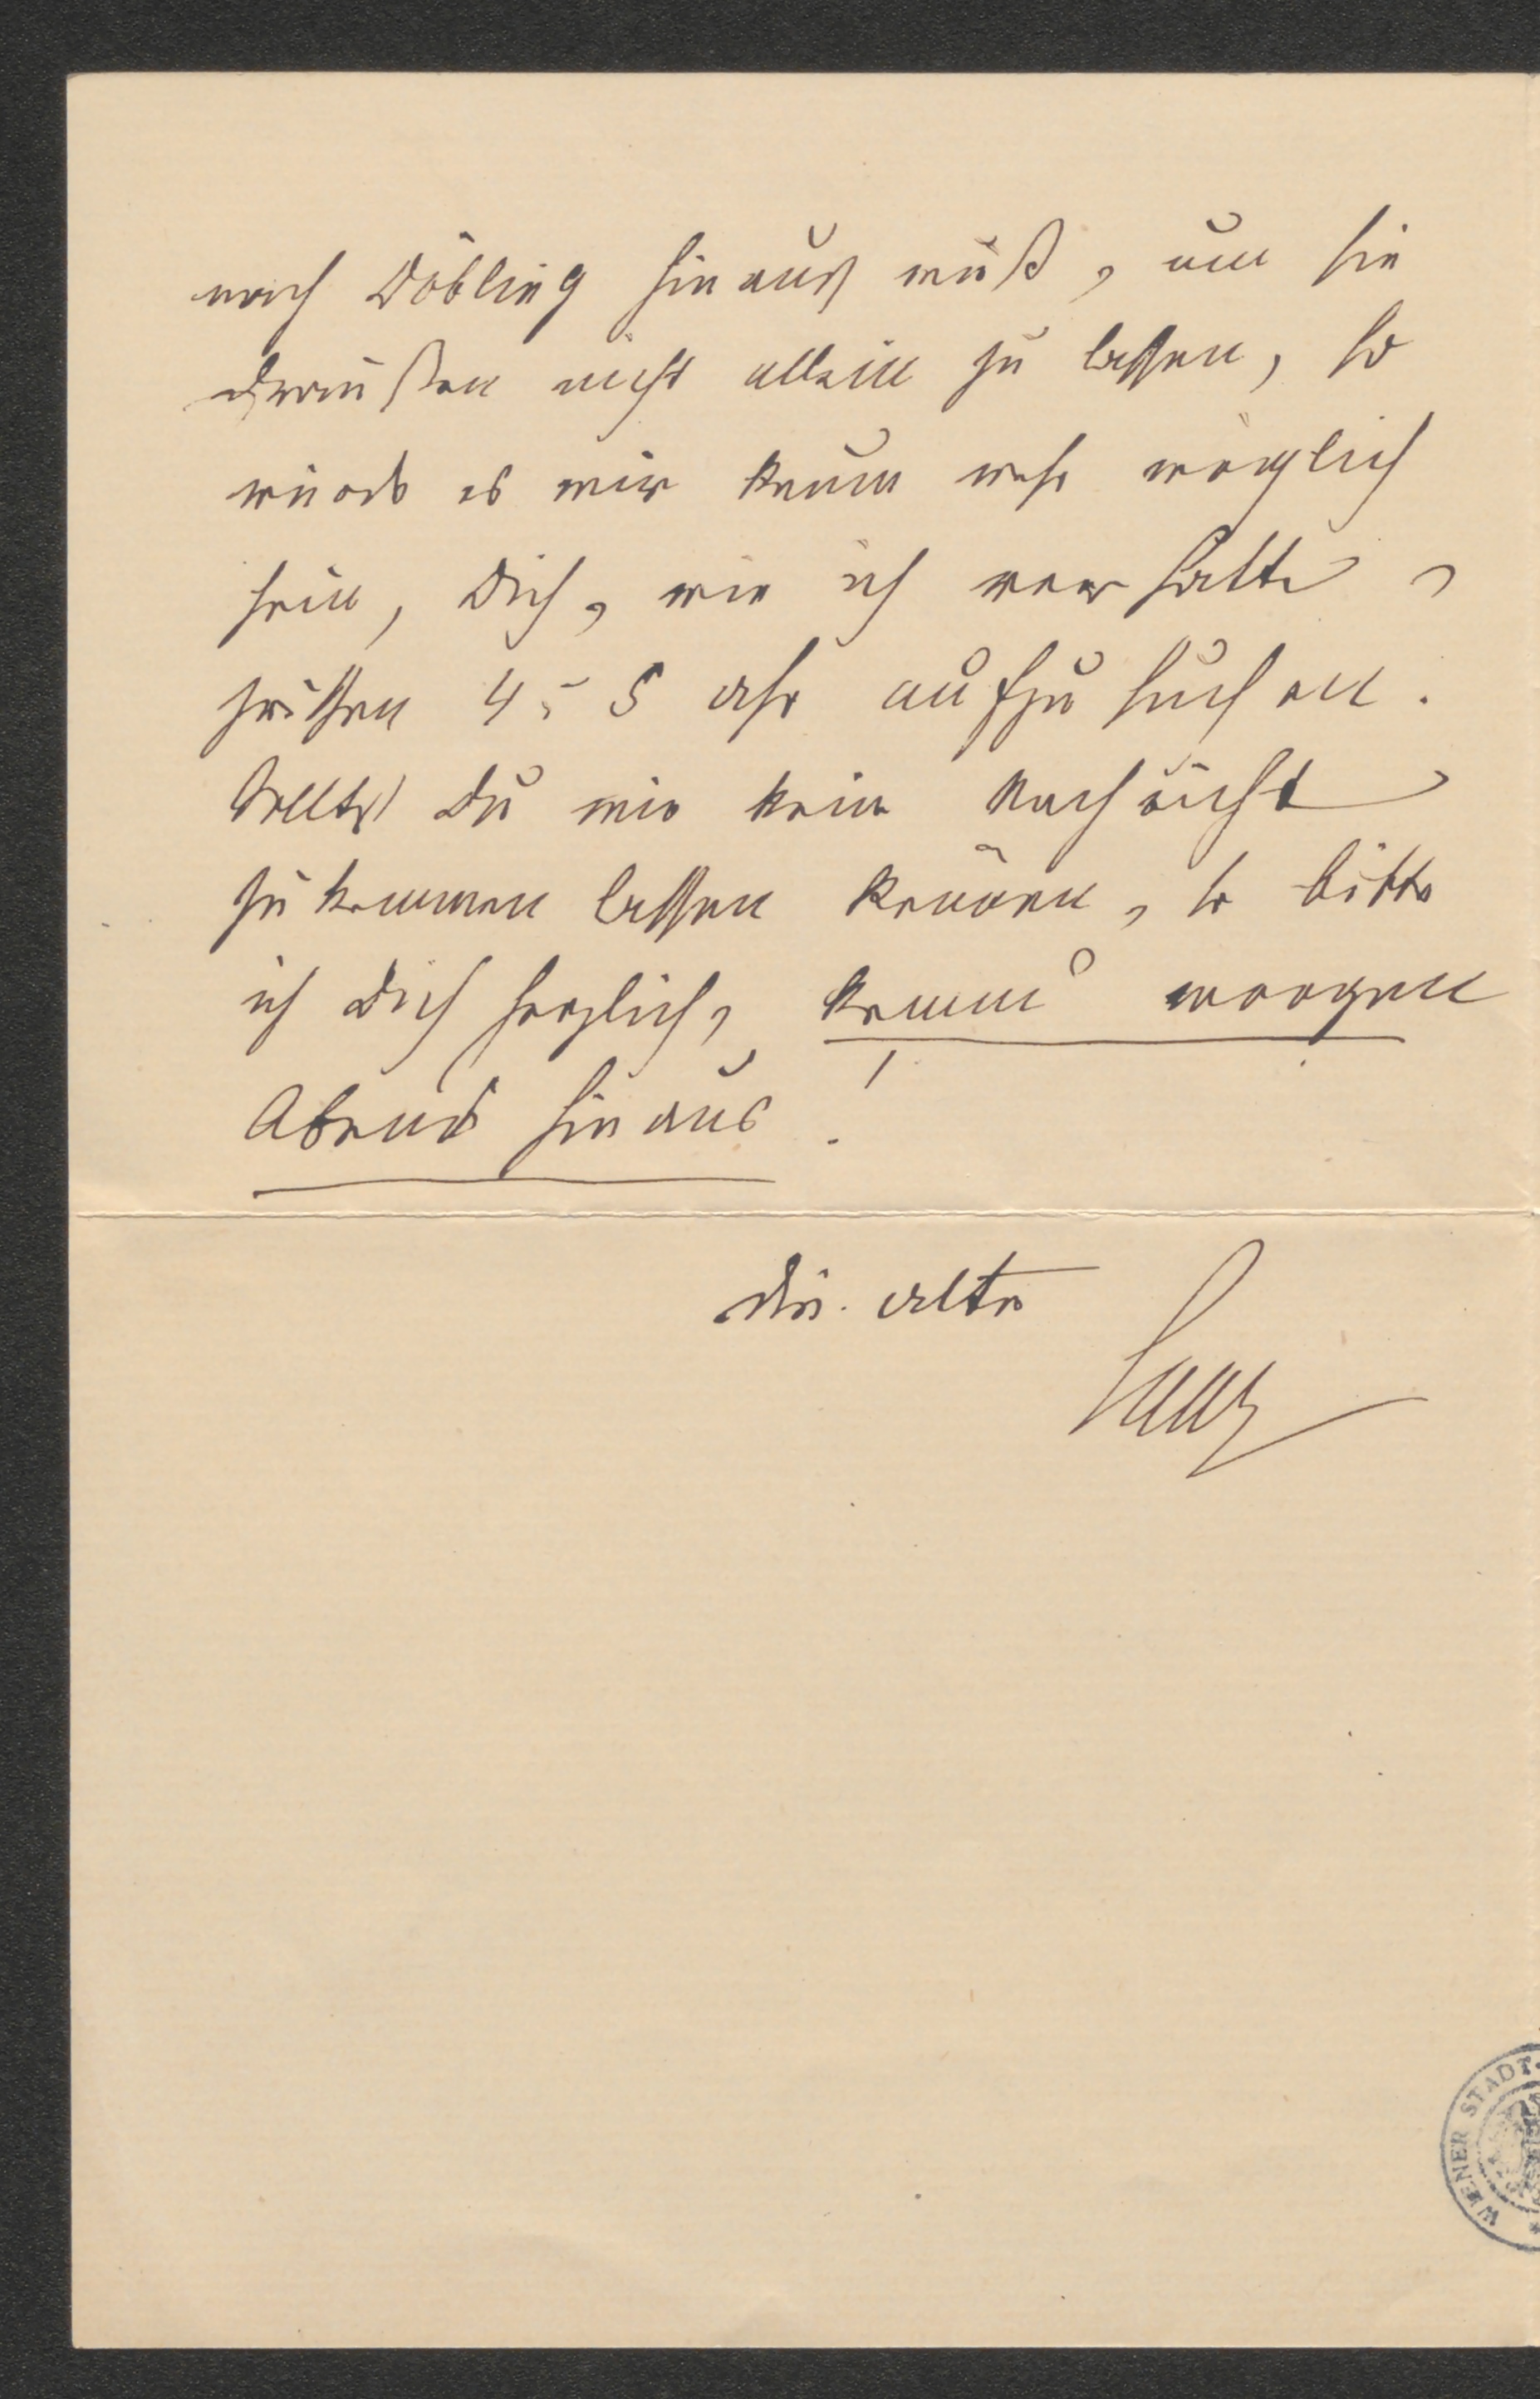 nach Döbling hinaus muß, um sie
draußen nicht allein zu lassen, so
würde es mir kaum mehr möglich
sein, Dich, wie ich vor hatte,
zwischen 4 – 5 Uhr aufzusuchen.
Solltest Du mir keine Nachricht
zukommen lassen können, so bitte
ich Dich herzlich, komm' morgen
Abend hinaus!
Dein alter
Saar
WIENER STADT-